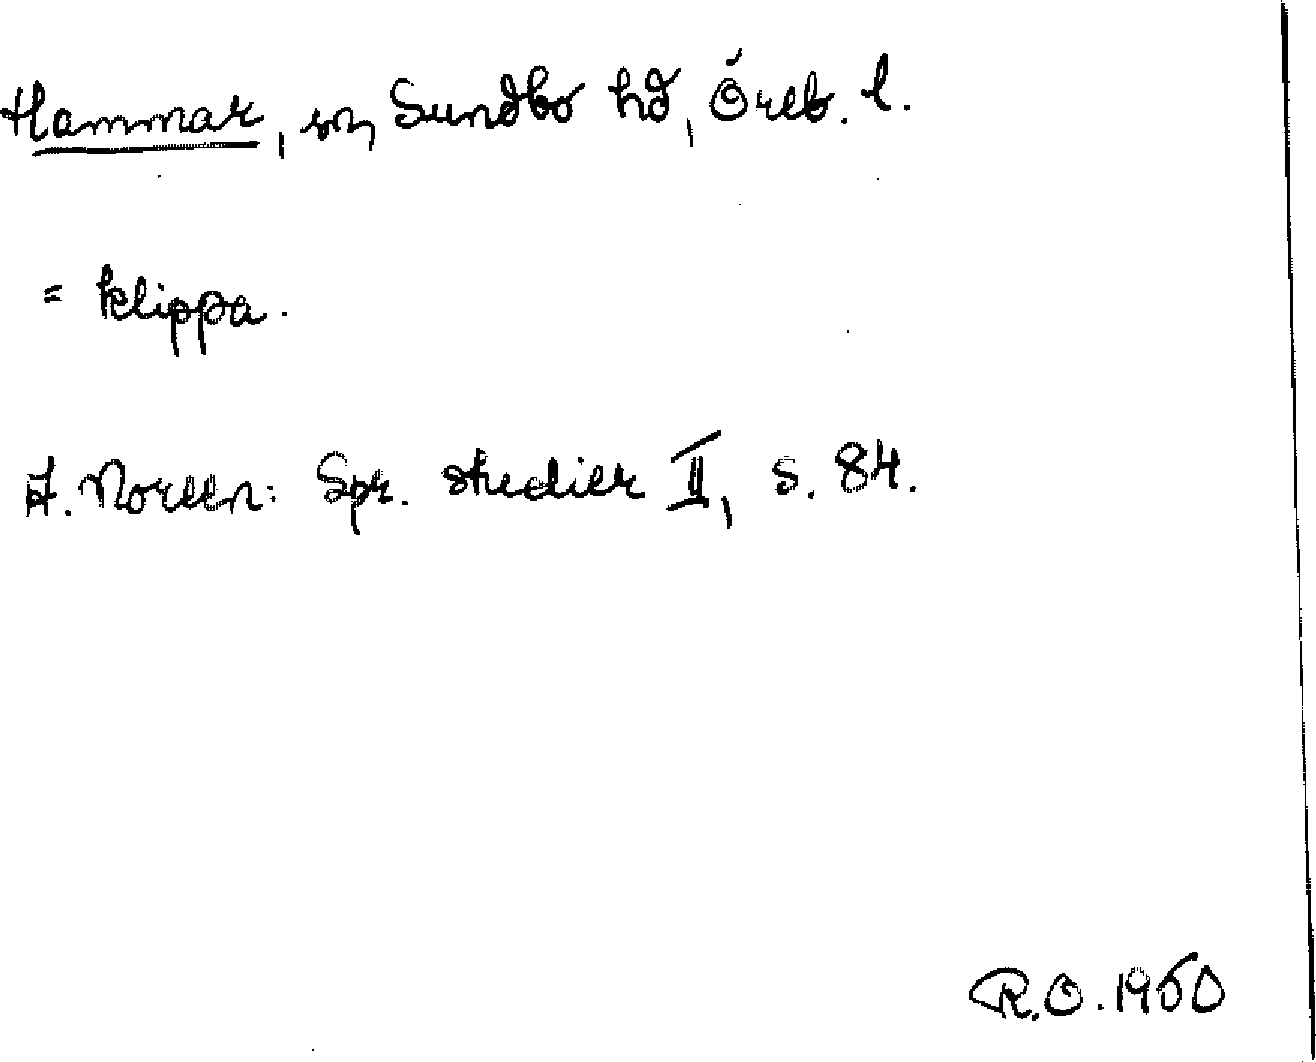 Hammar, sn, Sundbo hd, Öreb. l.
= klippa.
A. Noreen: Spr. studier II, s. 84.
R.O. 1950